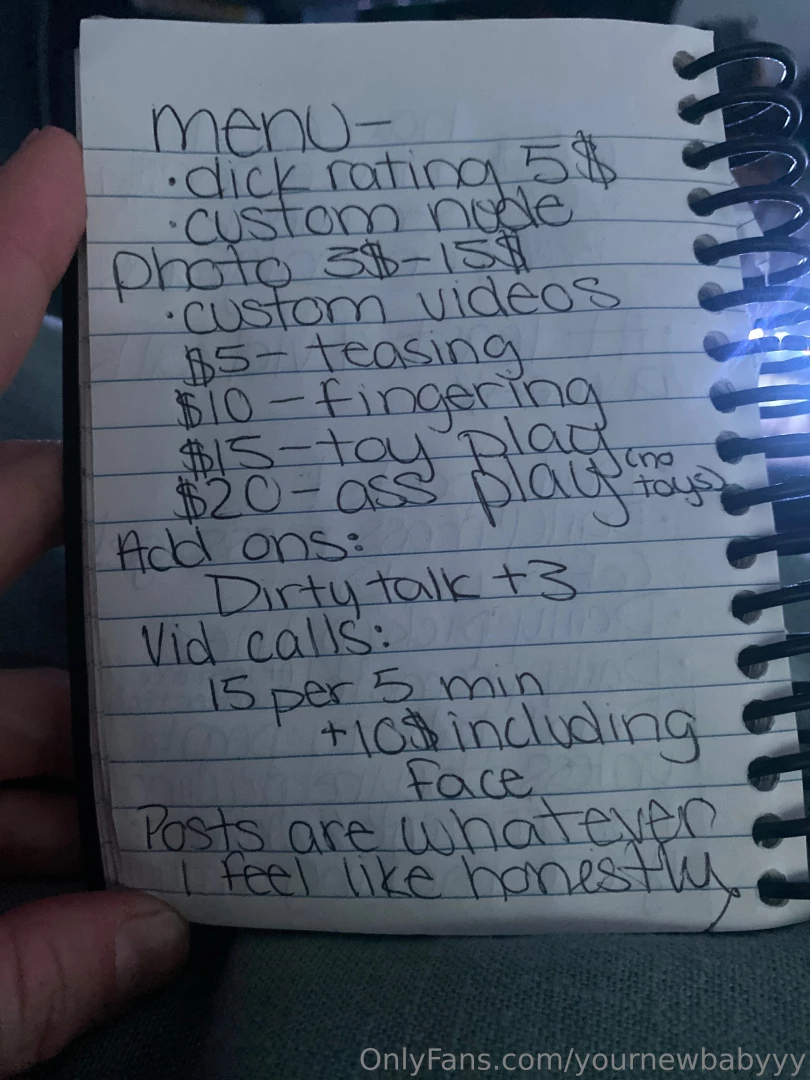 menu-
·dick rating 5$
·custom nude
photo 3$-15$
·custom videos
$5- teasing
$10-fingering
$15-toy play
$20-ass play (no toys)
Add ons:
Dirty talk +3
Vid calls:
15 per 5 min
+10$ including
face
Posts are whatever
I feel like honestly
OnlyFans.com/yournewbabyyy